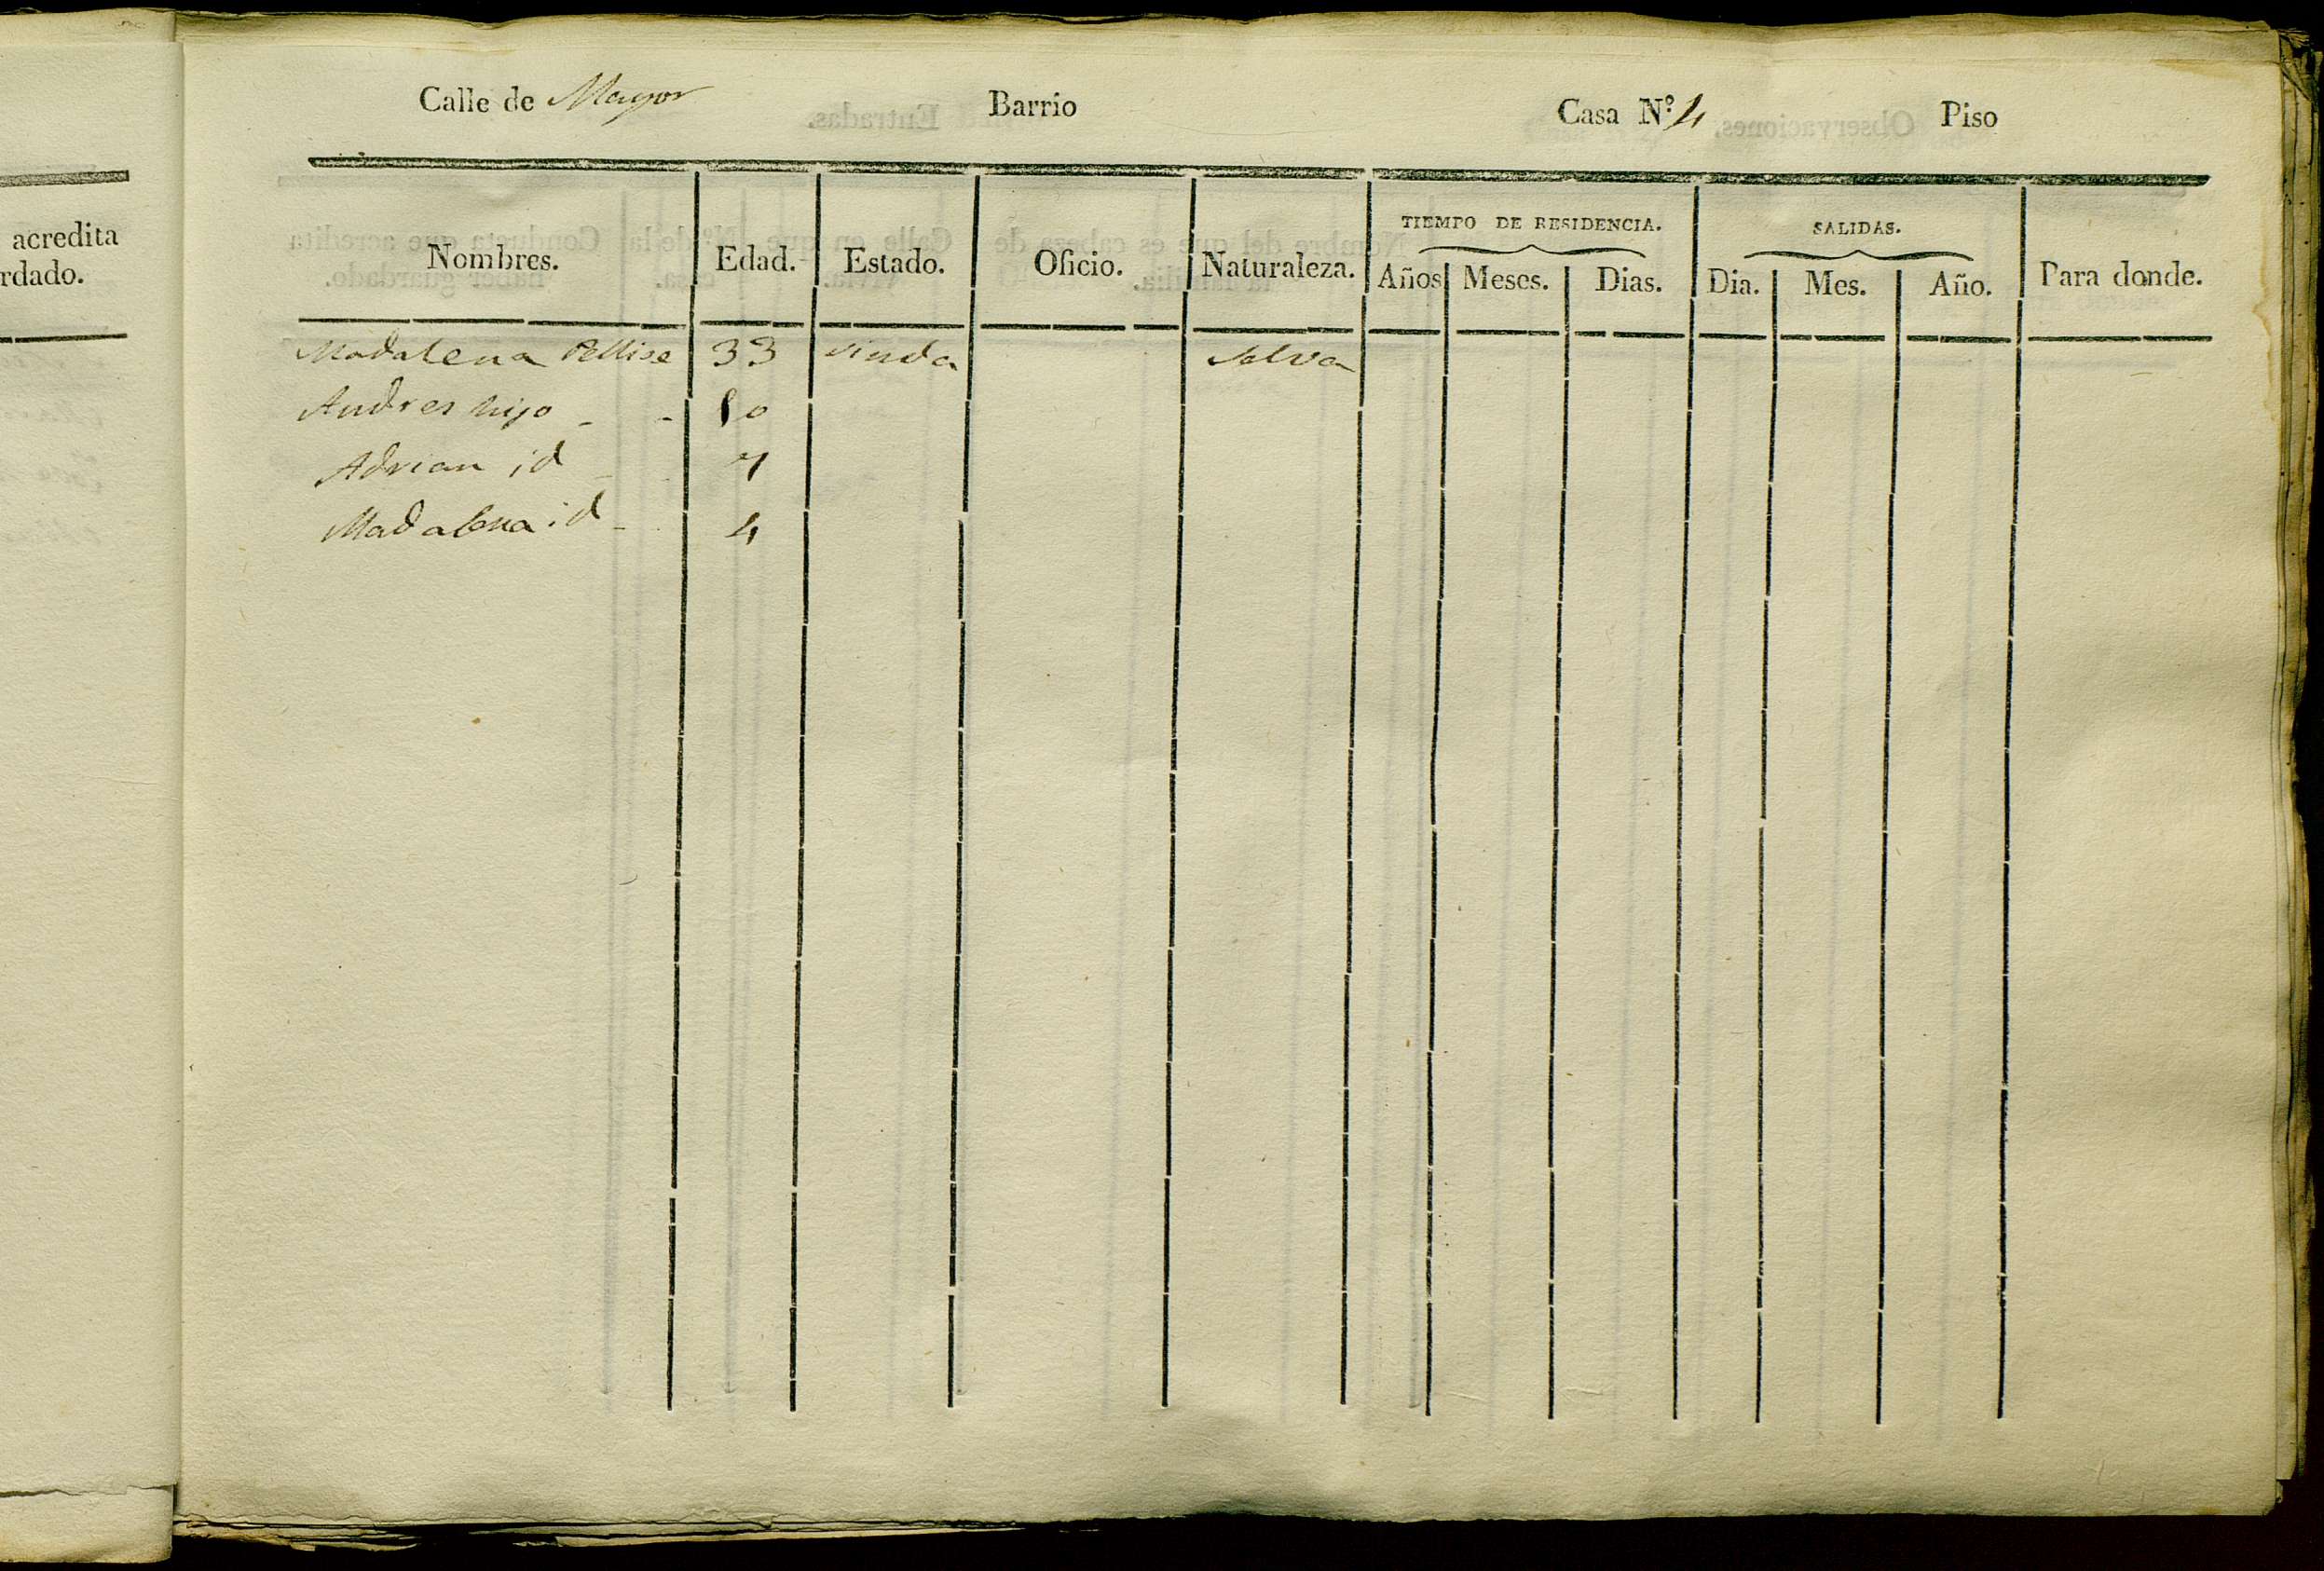 Calle de Mayor Barrio Casa Nº 4 Piso
acredita
rdado.
TIEMPO DE RESIDENCIA. SALIDAS.
Nombres. Edad. Estado. Oficio. Naturaleza. Años Meses. Dias. Dia. Mes. Año. Para donde.
Madalena Pellise 33 viuda Selva
Andres hijo - - 10
Adrian id - 7
Madalena id - 4